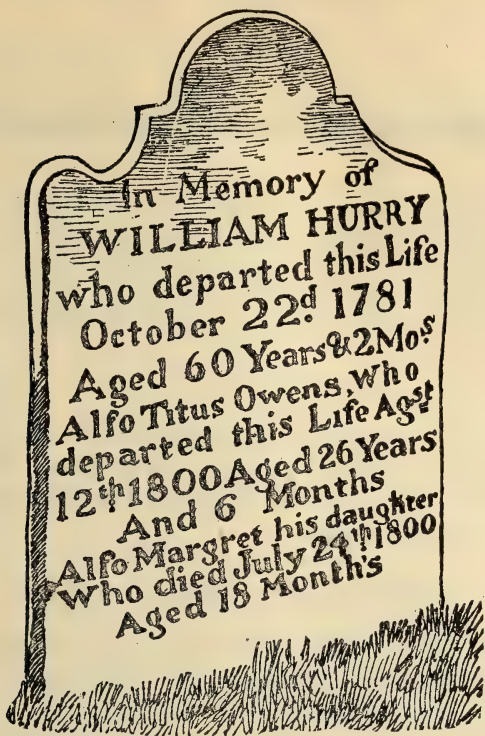 In Memory of
WILLIAM HURRY
who departed this Life
October 22.d 1781
Aged 60 Years & 2 Mo.s
Alſo Titus Owens, Who
departed this Life Ag.st
12th 1800 Aged 26 Years
And 6 Months
Alſo Margret his daughter
Who died July 24th 1800
Aged 18 Months